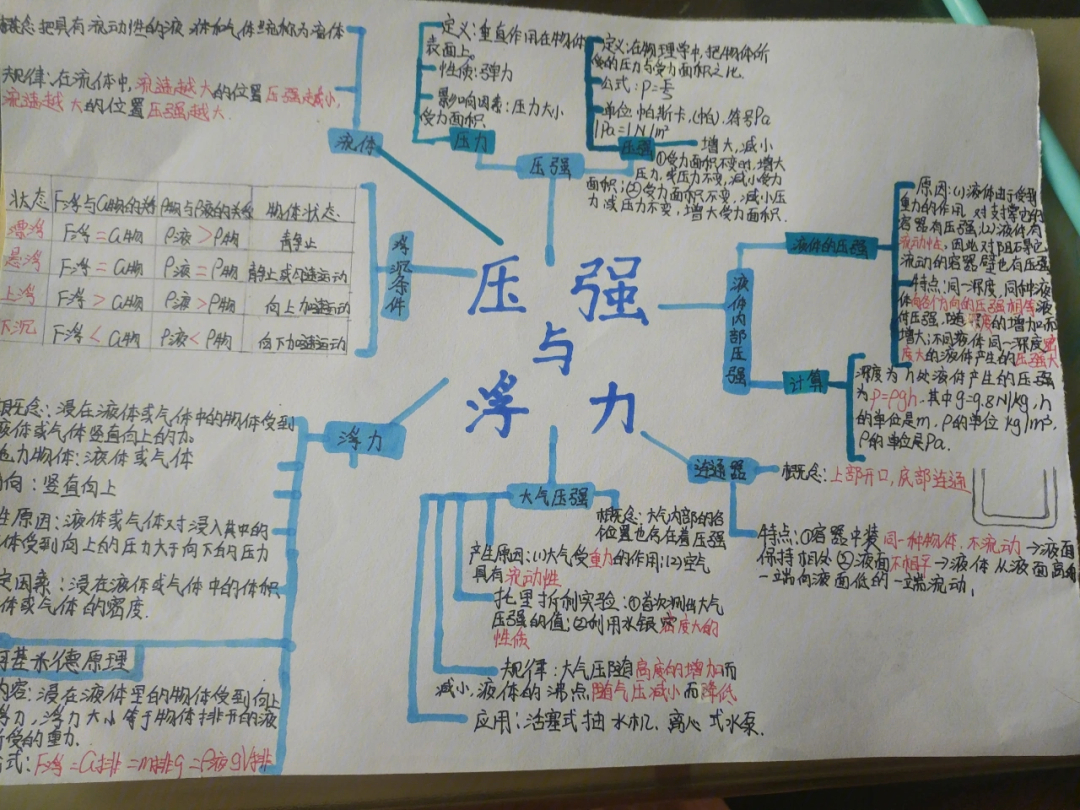 概念:把具有流动性的液体和气体统称为流体
规律:在流体中,流速越大的位置压强越小,
流速越大的位置压强越大.
流体
定义:垂直作用在物体
表面上。
性质:弹力
影响因素:压力大小
受力面积.
压力
压强
定义:在物理学中,把物体所
受的压力与受力面积之比.
公式:P=F/S
单位:帕斯卡,(帕),符号Pa
1Pa=1N/m²
压强
增大,减小
①受力面积不变时,增大
压力,或压力不变,减小受力
面积;②受力面积不变,减小压
力或压力不变,增大受力面积.
状态 F浮与G物的关系 ρ物与ρ液的关系 物体状态
漂浮 F浮=G物 ρ液>ρ物 静止
悬浮 F浮=G物 ρ液=ρ物 静止或匀速运动
上浮 F浮>G物 ρ液>ρ物 向上加速运动
下沉 F浮<G物 ρ液<ρ物 向下加速运动
浮沉条件
压强
与
浮力
液体内部压强
液体的压强
原因:(1)液体由于受到
重力的作用,对支撑它的
容器有压强;(2)液体有
流动性,因此对阻碍它
流动的容器壁也有压强
特点:同一深度,同种液
体向各个方向的压强相等液
体压强,随深度的增加而
增大;不同液体同一深度密
度大的液体产生的压强大
计算
深度为h处液体产生的压强
为P=ρgh,其中g=9.8N/kg,h
的单位是m,ρ的单位kg/m³,
P的单位是Pa.
概念:浸在液体或气体中的物体受到
液体或气体竖直向上的力。
施力物体:液体或气体
方向:竖直向上
产生原因:液体或气体对浸入其中的
物体受到向上的压力大于向下的压力
决定因素:浸在液体或气体中的体积
液体或气体的密度.
浮力
阿基米德原理
内容:浸在液体里的物体受到向上
浮力,浮力大小等于物体排开的液
所受的重力.
公式:F浮=G排=m排g=ρ液gV排
大气压强
概念:大气内部的各
位置也存在着压强
产生原因:(1)大气受重力的作用;(2)空气
具有流动性
托里拆利实验:①首次测出大气
压强的值;②利用水银密度大的
性质
规律:大气压随高度的增加而
减小,液体的沸点随气压减小而降低
应用:活塞式抽水机、离心式水泵.
连通器
概念:上部开口,底部连通
特点:①容器中装同一种物体,不流动→液面
保持相处②液面不相平→液体从液面高的
一端向液面低的一端流动.